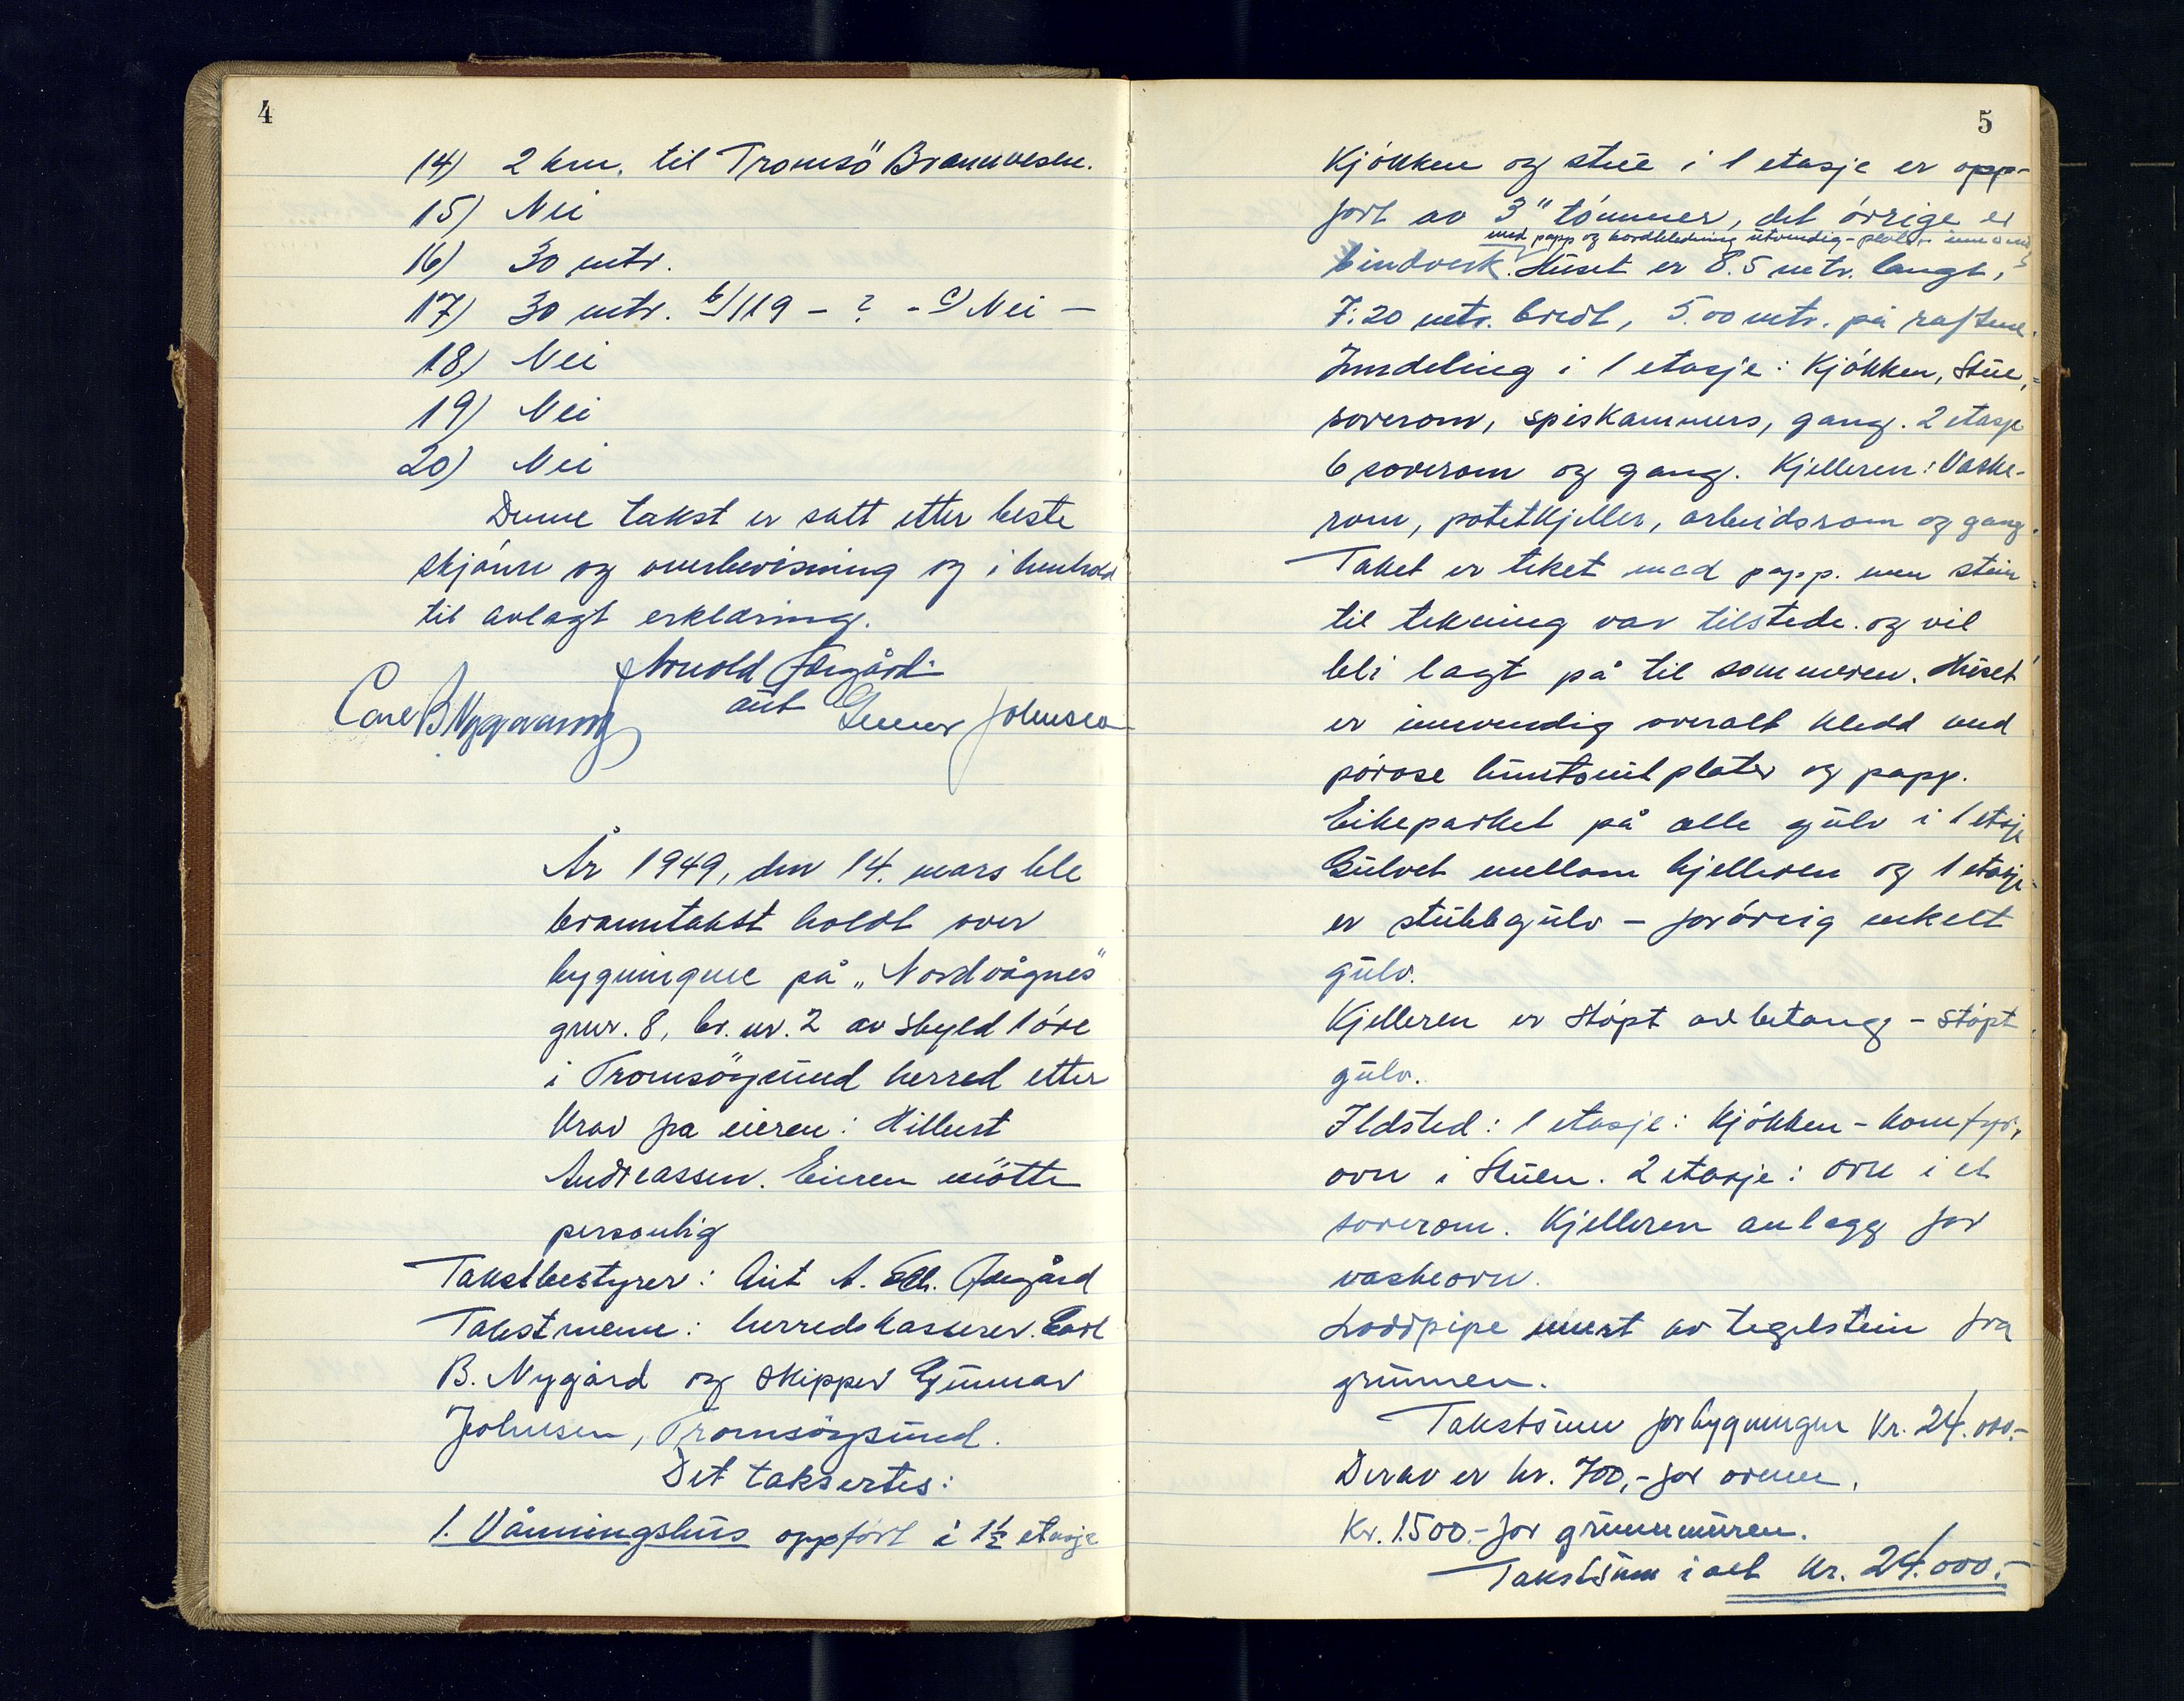 4
14) 2 km. til Tromsö Brannvesen.
15) Nei
16) 30 mtr.
17) 30 mtr. b/119 - ? - c) Nei -
18) Nei
19) Nei
20) Nei
Denne takst er satt etter beste
skjönn og overbevisning og i henhold
til avlagt erklæring.
Arnold
aut Gunnar Johnsen
Carl B Nygaard
År 1949, den 14. mars ble
branntakst holdt over
bygningene på „Nordvågnes"
gnr. 8, br. nr. 2 av skyld 1 öre
i Tromsöysund herred etter
krav fra eieren: Hilbert
Andreassen. Eieren mötte
personlig
Takstbestyrer: Aut A.
Takstmenn: herredskasserer Carl
B. Nygård og skipper Gunnar
Johnsen, Tromsöysund.
Det taksertes:
1. Våningshus oppfört i 1½ etasje
5
Kjökken og stue i 1 etasje er opp-
fört av 3" tömmer, det övrige er
med papp og bordkledning utvendig - plater innvend
bindverk. Huset er 8.5 mtr. langt,
7.20 mtr. bredt, 5.00 mtr. på raftene.
Inndeling i 1 etasje: Kjökken, Stue,
soverom, spiskammers, gang. 2 etasje
6 soverom og gang. Kjelleren: Vaske-
rom, potetkjeller, arbeidsrom og gang.
Taket er teket med papp. men stein
til tekning var tilstede. og vil
bli lagt på til sommeren. Huset
er innvendig overalt kledd med
poröse huntonitplater og papp.
Eikeparket på alle gulv i 1 etasje
Gulvet mellom kjelleren og 1 etasje
er stubbgulv - forövrig enkelt
gulv.
Kjelleren er stöpt av betong - stöpt
gulv.
Ildsted: 1 etasje: Kjökken - komfyr,
ovn i Stuen. 2 etasje: ovn i et
soverom. Kjelleren anlegg for
vaskeovn.
Loddpipe murt av tegelstein fra
grunnen.
Takstsum for bygningen Kr. 24.000.-
Derav er kr. 700,- for ovnen.
Kr. 1.500.- for grunnmuren.
Takstsum i alt kr. 24.000.-